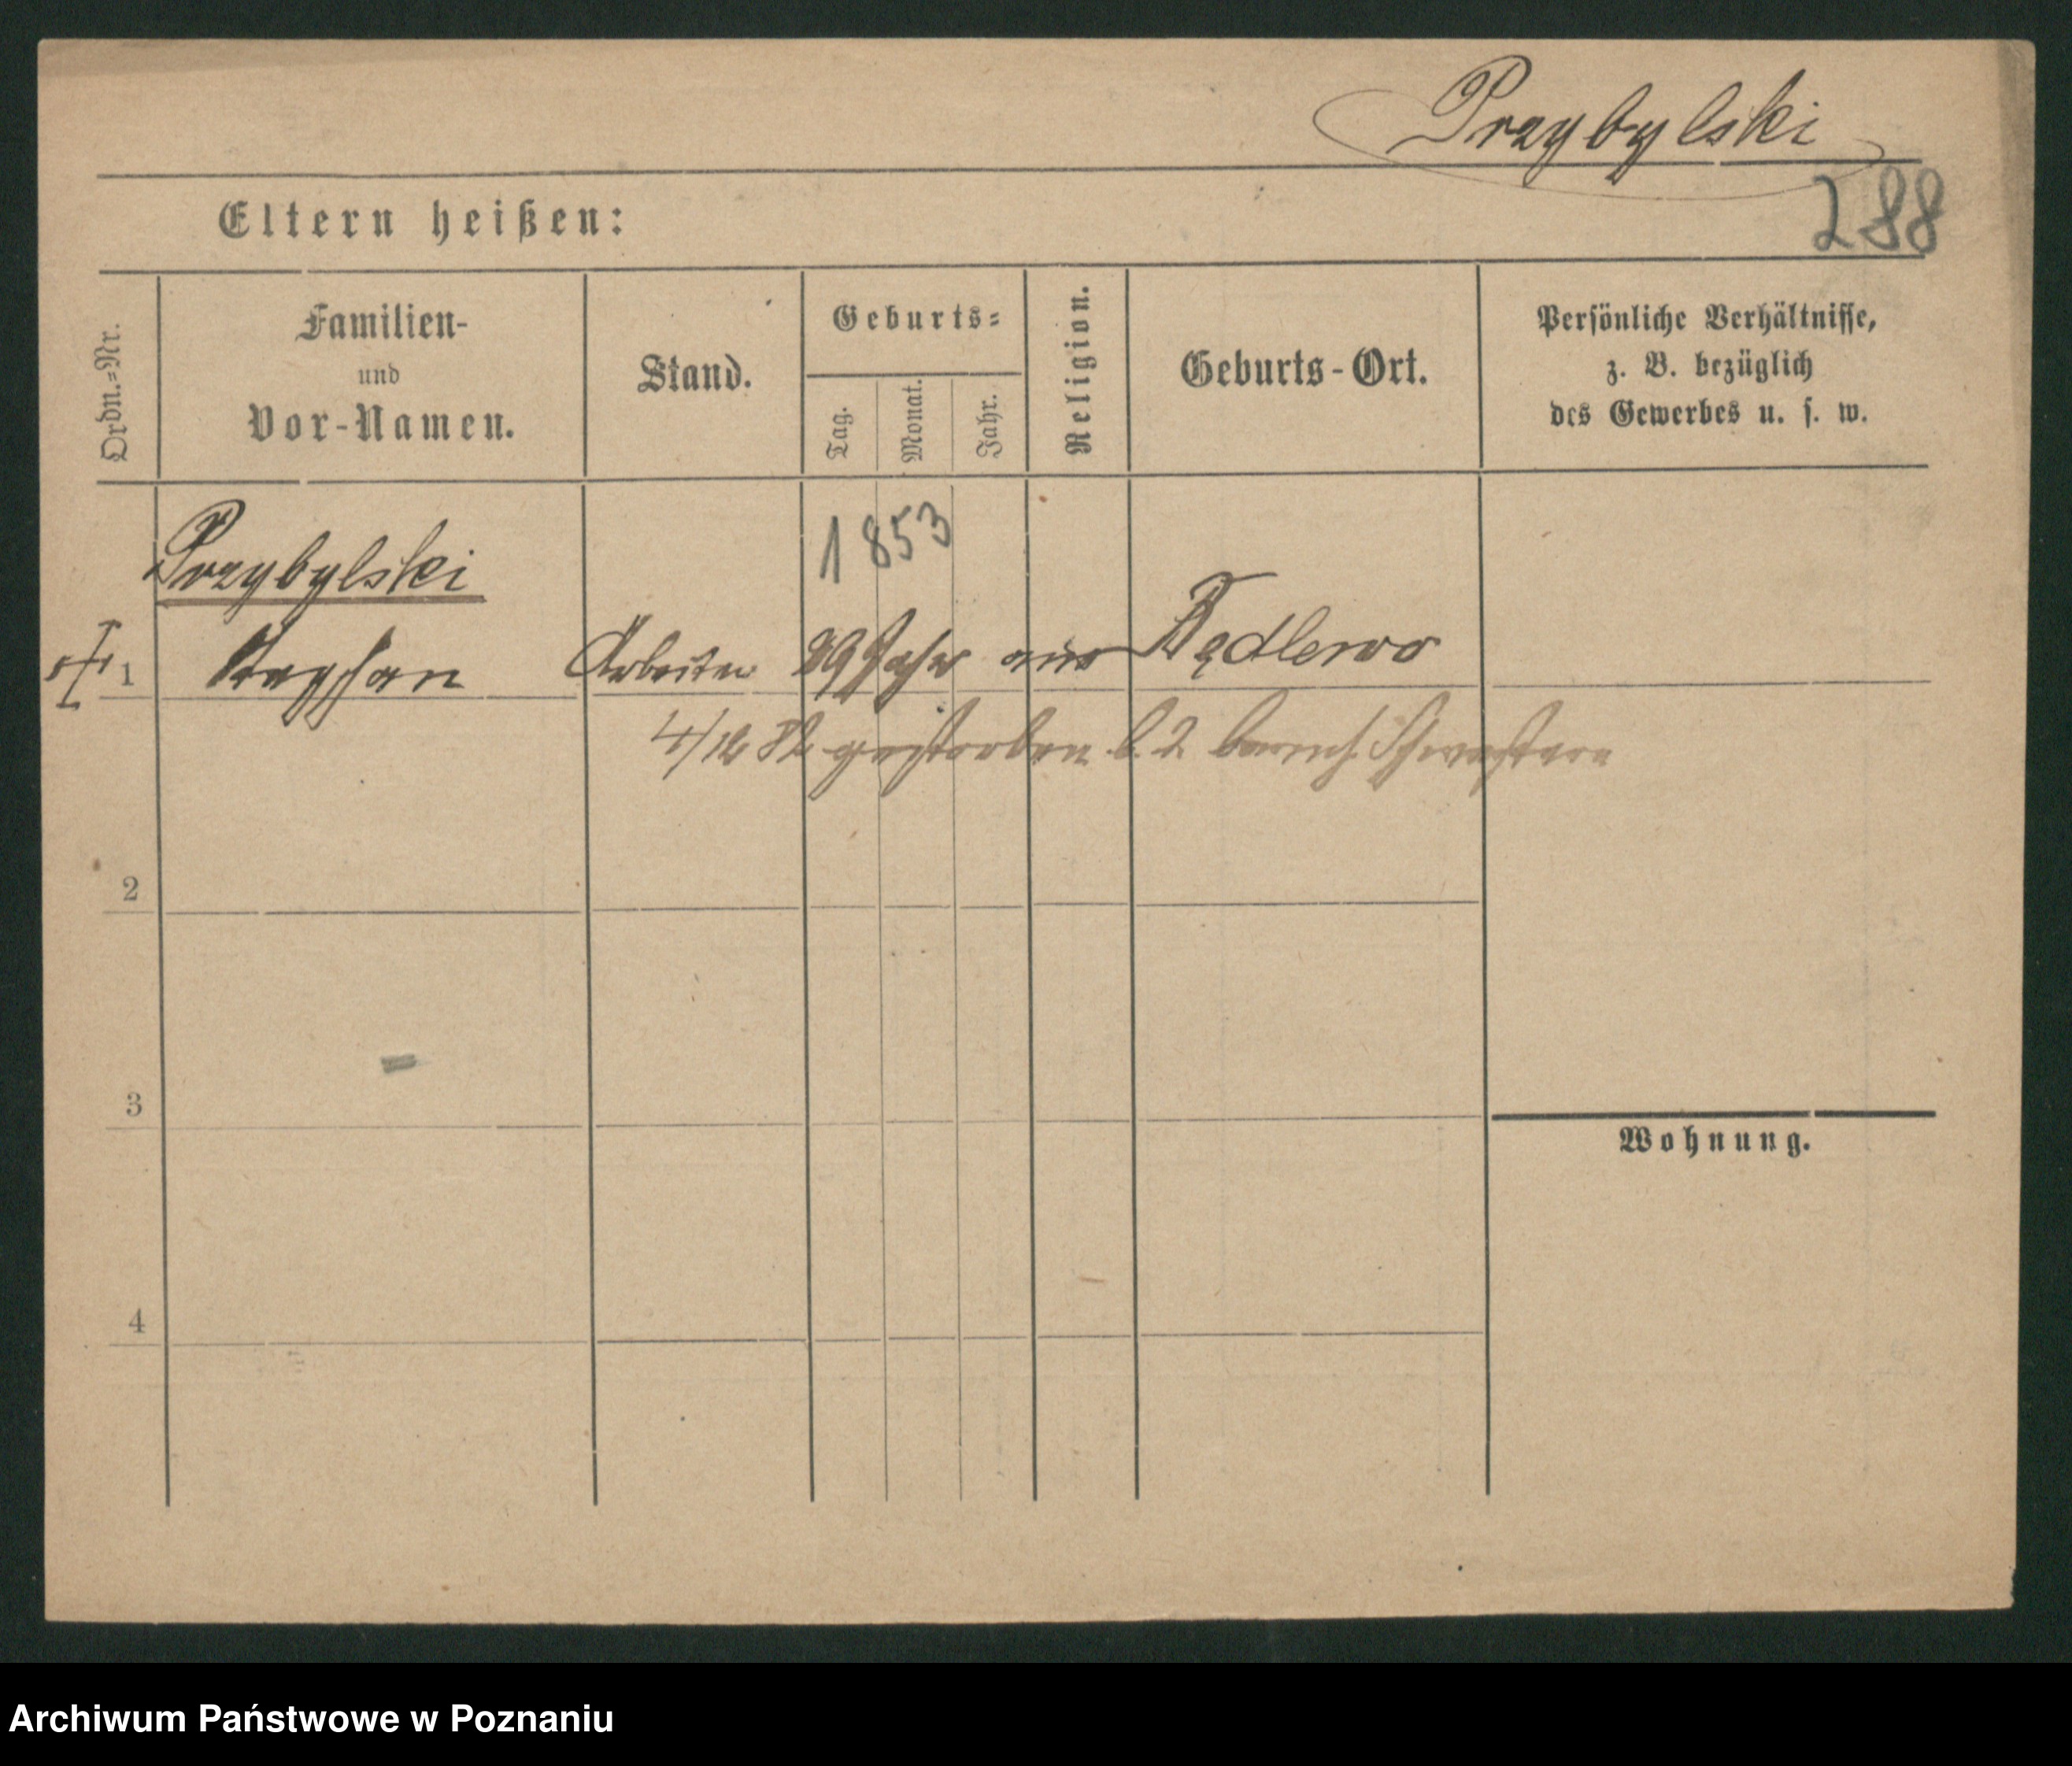 Przybylski
288
Eltern heißen:
Ordn.=Nr.
Familien-
und
Vor-Namen.
Stand.
Geburts=
Tag.
Monat.
Jahr.
Religion.
Geburts-Ort.
Persönliche Verhältnisse,
z. B. bezüglich
des Gewerbes u. s. w.
1853
Przybylski
1 Stephan Arbeiter 29 Jahr aus Bądlewo
4/12 82 gestorben b. d. barmh. Schwestern
2
3
Wohnung.
4
Archiwum Państwowe w Poznaniu